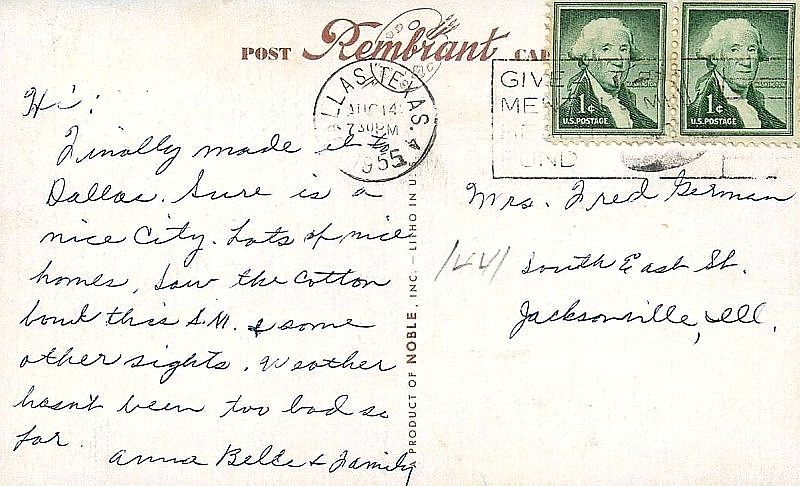 POST Rembrant CAR
DALLAS, TEXAS. A
AUG 14
7 30 PM
1955
GIVE
ME
UND
1¢
U.S. POSTAGE
1¢
U.S. POSTAGE
Hi:
Finally made it to
Dallas. Sure is a
nice City. Lots of nice
homes, Saw the Cotton
bowl this A.M. & some
other sights. Weather
hasn't been too bad so
far.
Anna Belle & Family
PRODUCT OF NOBLE, INC. — LITHO IN U
Mrs. Fred German
1441 South East St.
Jacksonville, Ill.